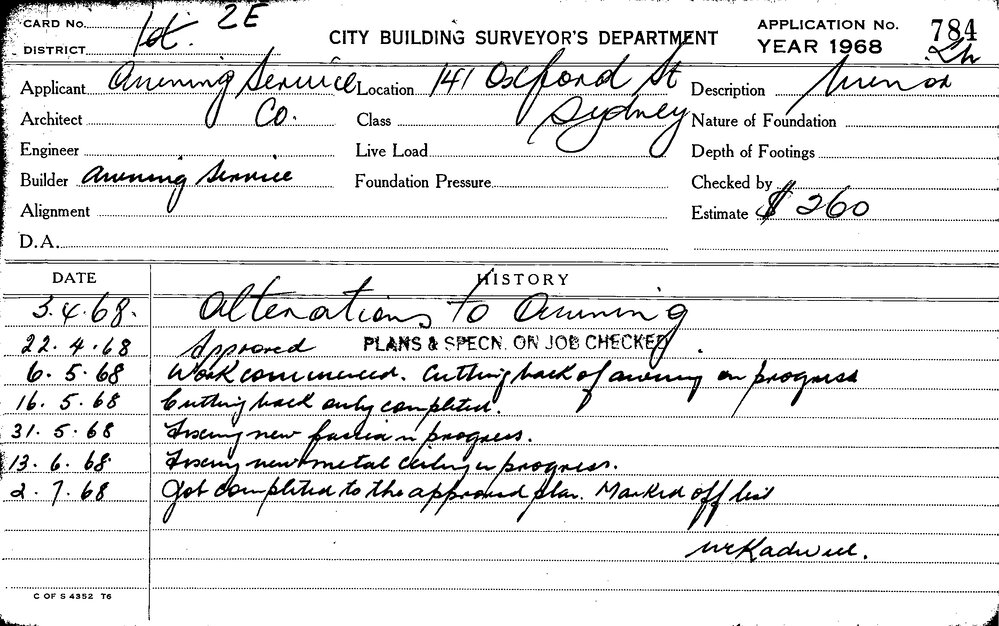 CARD No. 2E
DISTRICT
CITY BUILDING SURVEYOR'S DEPARTMENT
APPLICATION No. 784
YEAR 1968
Applicant Awning Service Co.
Location 141 Oxford St Sydney
Description Minor
Architect
Class
Nature of Foundation
Engineer
Live Load
Depth of Footings
Builder Awning Service
Foundation Pressure
Checked by
Alignment
Estimate $ 260
D.A.
DATE HISTORY
3.4.68. Alterations to Awning
22.4.68 Approved PLANS & SPECN. ON JOB CHECKED.
6.5.68 Work commenced. Cutting back of awning in progress
16.5.68 Cutting back only completed.
31.5.68 Fixing new fascia in progress.
13.6.68 Fixing new metal ceiling in progress.
2.7.68 Job completed to the approved plan. Marked off list
C OF S 4352 T6